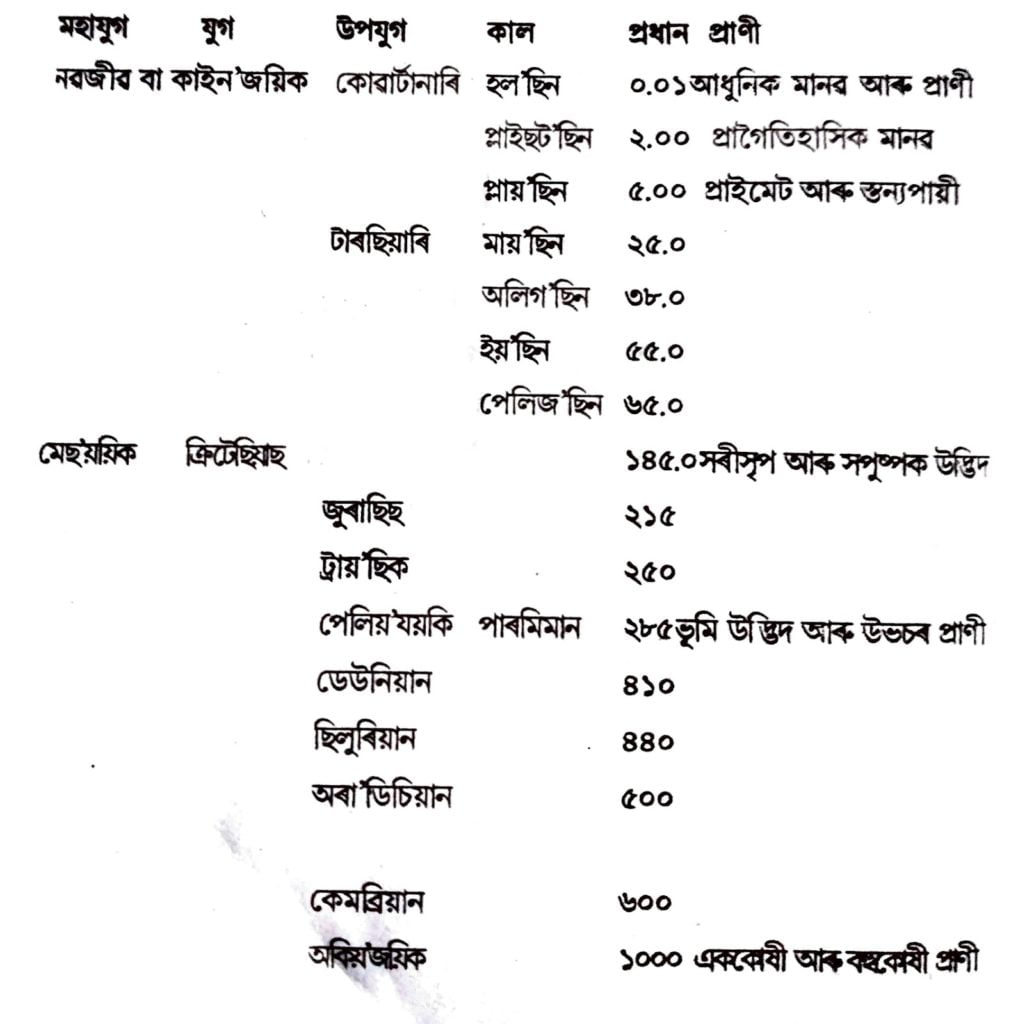 মহাযুগ যুগ উপযুগ কাল প্ৰধান প্ৰাণী
নৱজীৱ বা কাইন'জয়িক কোৱাৰ্টানাৰি হল'ছিন ০.০১ আধুনিক মানৱ আৰু প্ৰাণী
প্লাইছট'ছিন ২.০০ প্ৰাগৈতিহাসিক মানৱ
প্লায়'ছিন ৫.০০ প্ৰাইমেট আৰু স্তন্যপায়ী
টাৰছিয়াৰি মায়'ছিন ২৫.০
অলিগ'ছিন ৩৮.০
ইয়'ছিন ৫৫.০
পেলিজ'ছিন ৬৫.০
মেছ'য়য়িক ক্ৰিটেছিয়াছ ১৪৫.০ সৰীসৃপ আৰু সপুষ্পক উদ্ভিদ
জুৰাছিছ ২১৫
ট্ৰায়'ছিক ২৫০
পেলিয়'যয়কি পাৰমিমান ২৮৫ ভূমি উদ্ভিদ আৰু উভচৰ প্ৰাণী
ডেউনিয়ান ৪১০
ছিলুৰিয়ান ৪৪০
অৰা'ডিচিয়ান ৫০০
কেমব্ৰিয়ান ৬০০
অকিয়'জয়িক ১০০০ এককোষী আৰু বহুকোষী প্ৰাণী